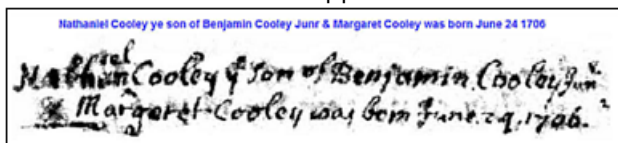 Nathaniel Cooley ye son of Benjamin Cooley Junr & Margaret Cooley was born June 24 1706
Nathaniel Cooley ye son of Benjamin Cooley Junr
& Margaret Cooley was born June 24, 1706.